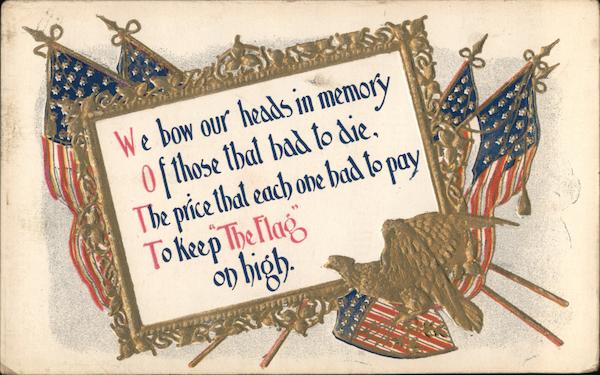 We bow our heads in memory
Of those that had to die,
The price that each one had to pay
To keep "The Flag"
on high.